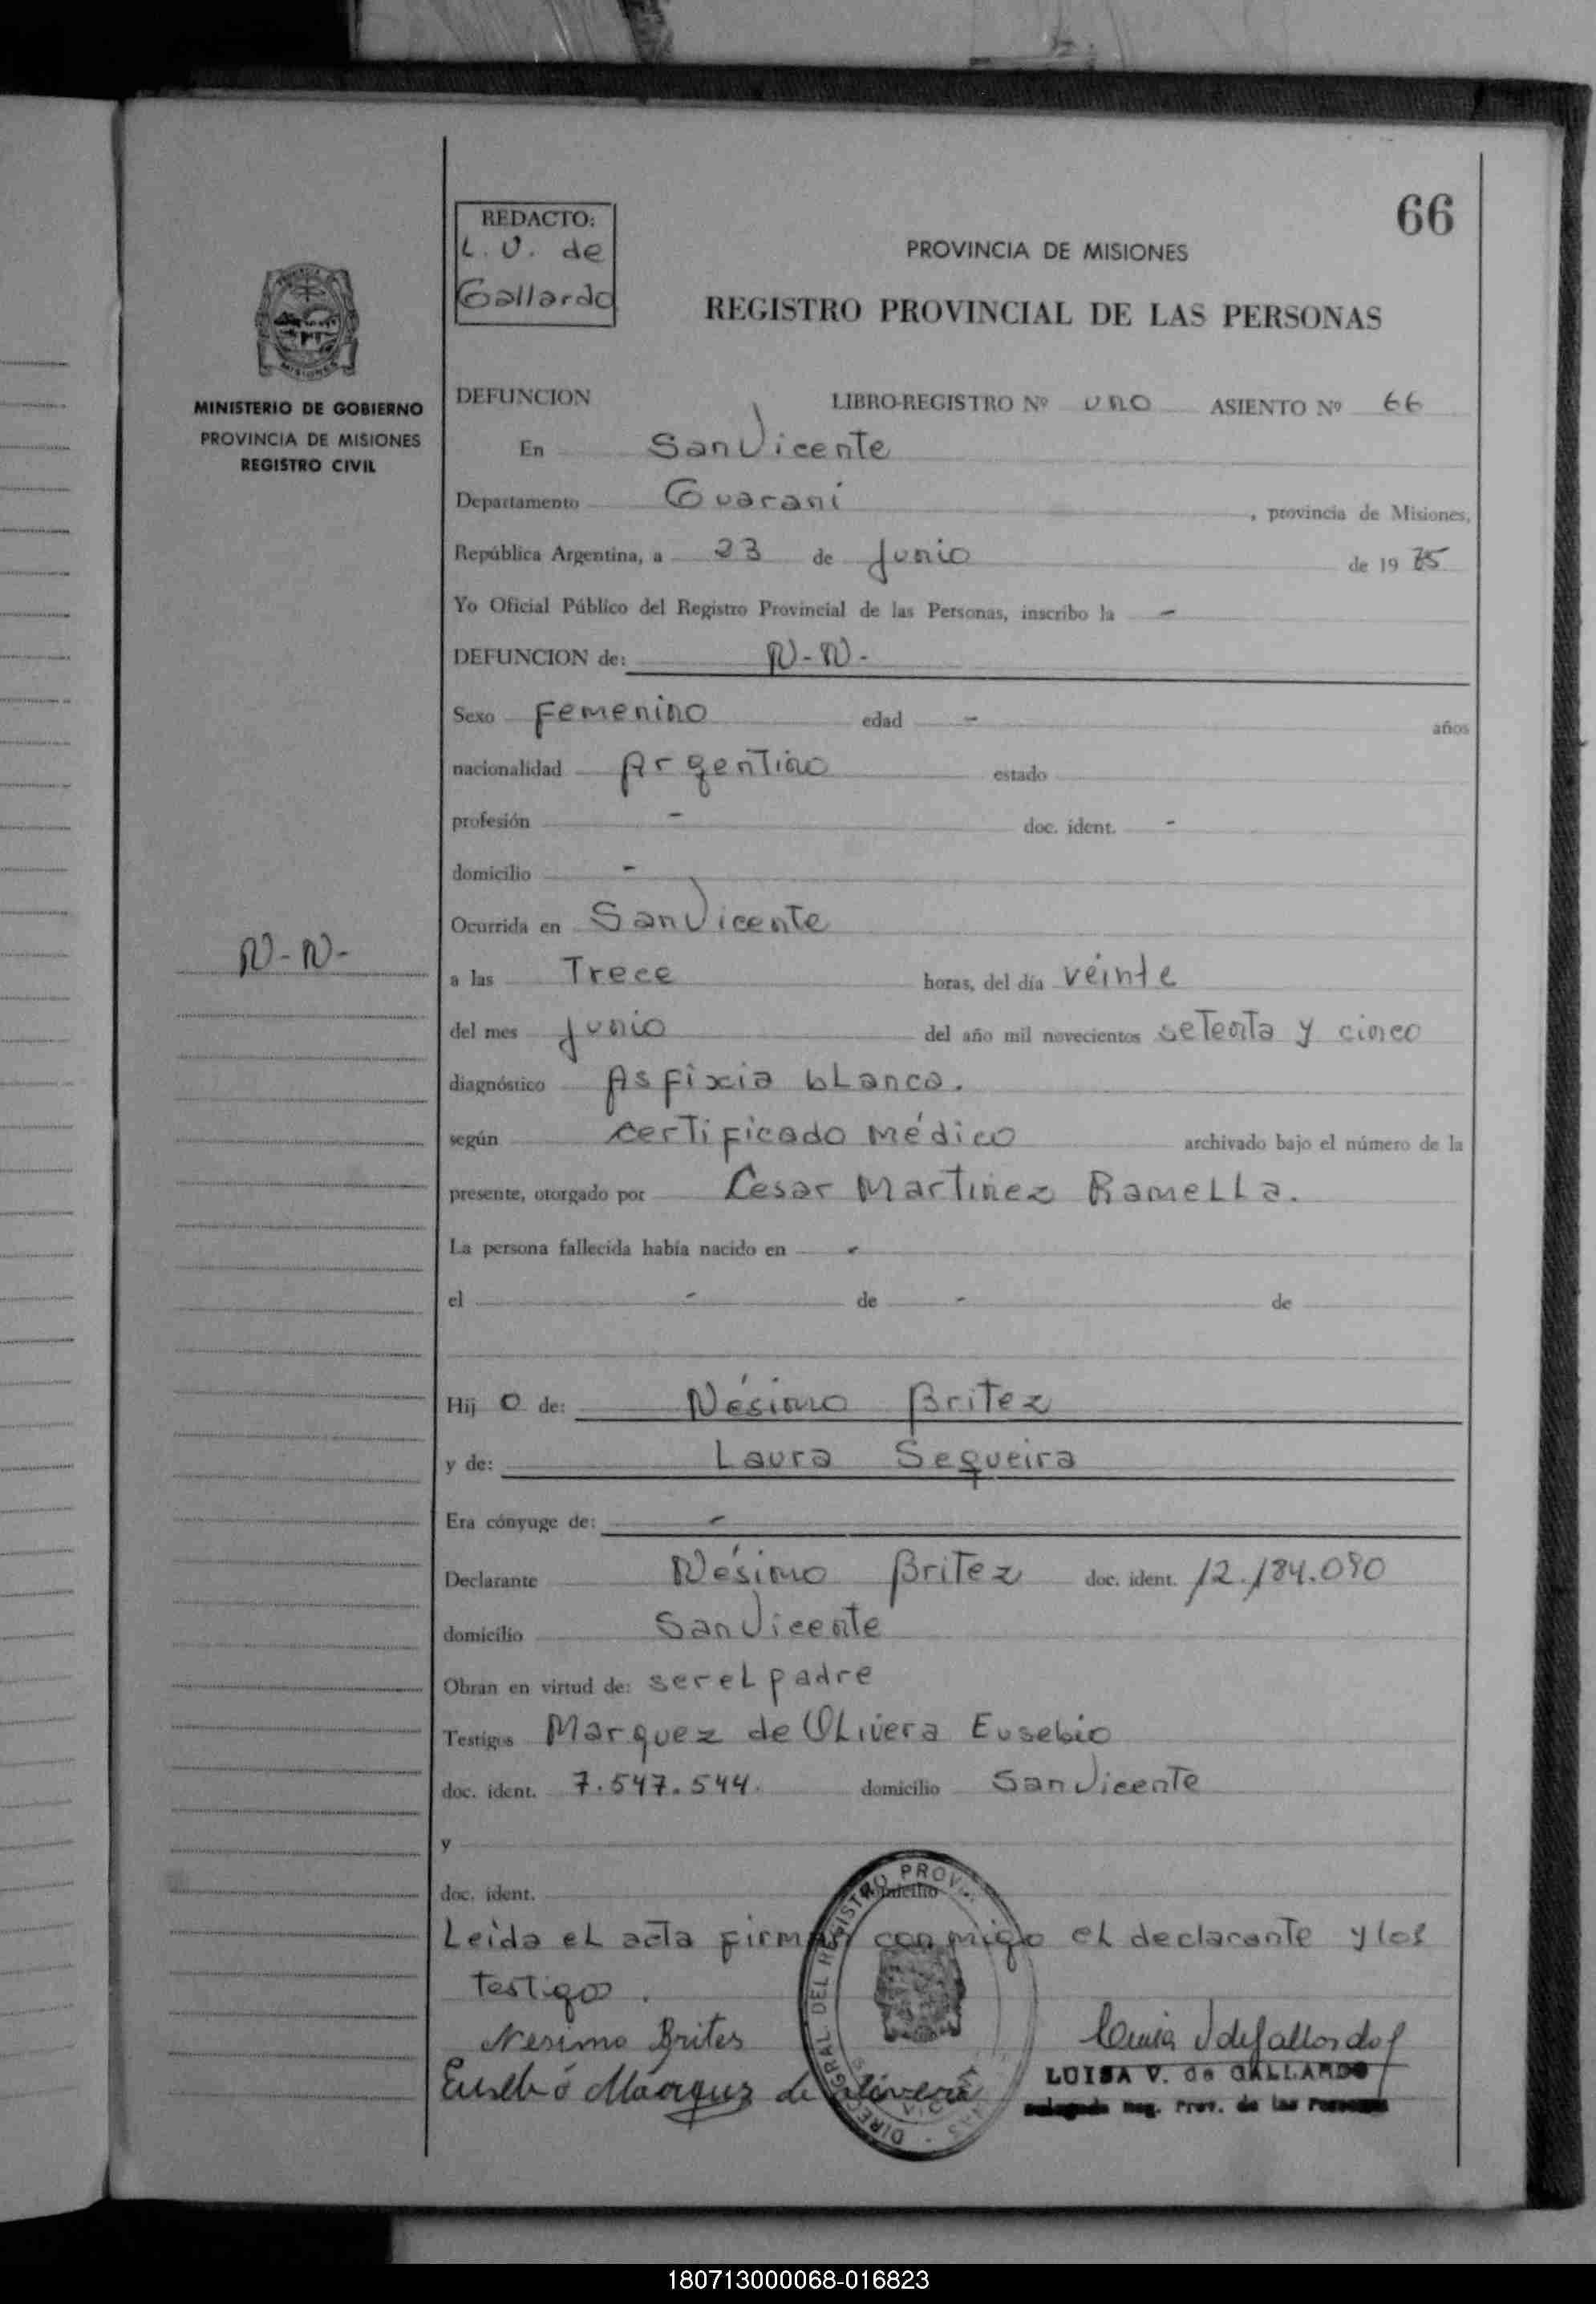 66
REDACTO:
L. V. de
Gallardo
PROVINCIA DE MISIONES
REGISTRO PROVINCIAL DE LAS PERSONAS
MISIONES
MINISTERIO DE GOBIERNO
PROVINCIA DE MISIONES
REGISTRO CIVIL
DEFUNCION LIBRO-REGISTRO Nº uno ASIENTO Nº 66
En San Vicente
Departamento Guarani , provincia de Misiones,
República Argentina, a 23 de Junio de 19 75
Yo Oficial Público del Registro Provincial de las Personas, inscribo la -
DEFUNCION de: N-N-
Sexo Femenino edad - años
nacionalidad Argentino estado
profesión - doc. ident. -
domicilio -
Ocurrida en San Vicente
N-N-
a las Trece horas, del día veinte
del mes Junio del año mil novecientos setenta y cinco
diagnóstico Asfixia blanca.
según certificado médico archivado bajo el número de la
presente, otorgado por Cesar Martinez Ramella.
La persona fallecida había nacido en -
el - de - de
Hij o de: Nésimo Britez
y de: Laura Sequeira
Era cónyuge de: -
Declarante Nésimo Britez doc. ident. 12.184.090
domicilio San Vicente
Obran en virtud de: ser el padre
Testigos Marquez de Olivera Eusebio
doc. ident. 7.547.544. domicilio San Vicente
y
doc. ident. domicilio
Leida el acta firman conmigo el declarante y los
testigos.
Nesimo Brites
Eusebio Marquez de Olivera
LUISA V. de GALLARDO
Delegada Reg. Prov. de las Personas
180713000068-016823